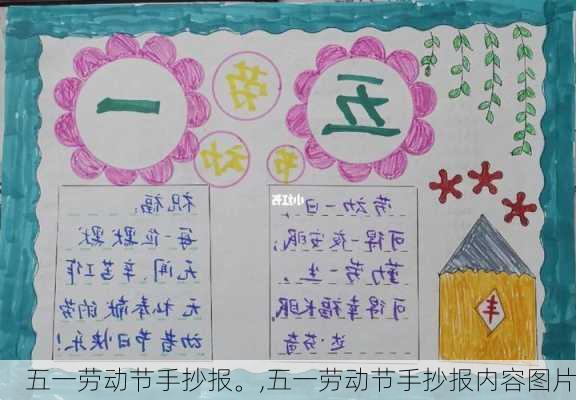 五一
劳动节
劳动一日,
可得一夜安眠;
勤劳一生,
可得幸福长眠
达芬奇
祝福:
每一位默默
无闻、辛苦工作
无私奉献的劳
动者节日快乐!
丰
小红书
五一劳动节手抄报。,五一劳动节手抄报内容图片